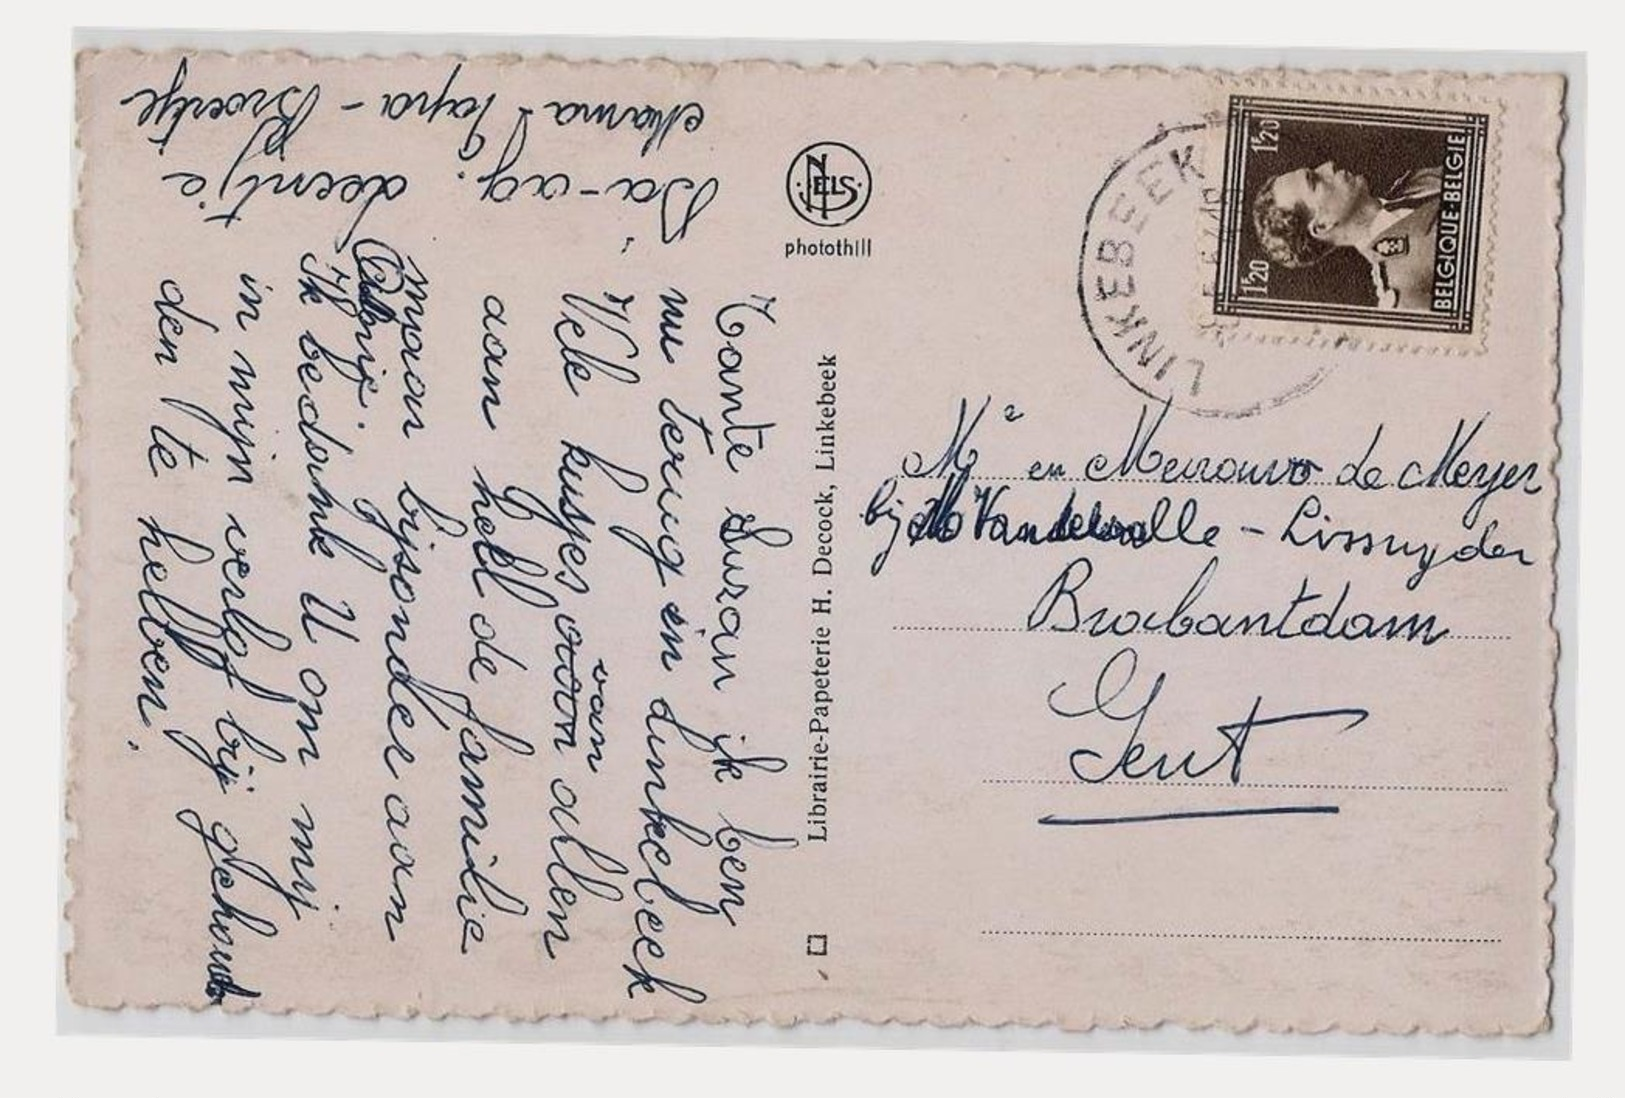 Tante Suzan ik ben
nu terug in Linkebeek
Vele kusjes voor allen
van
aan heel de familie
bijsonder aan
Ik bedank U om mij
in mijn verlof bij gehouden
den te hebben.
Da-ag.
Mama Papa - Broertje
deentje
NELS
photothill
Librairie-Papeterie H. Decock, Linkebeek
LINKEBEEK
1F20
1F20
BELGIQUE-BELGIE
Mr en Mevrouw de Meyer
bij Vandewalle - Lissnyder
Brabantdam
Gent